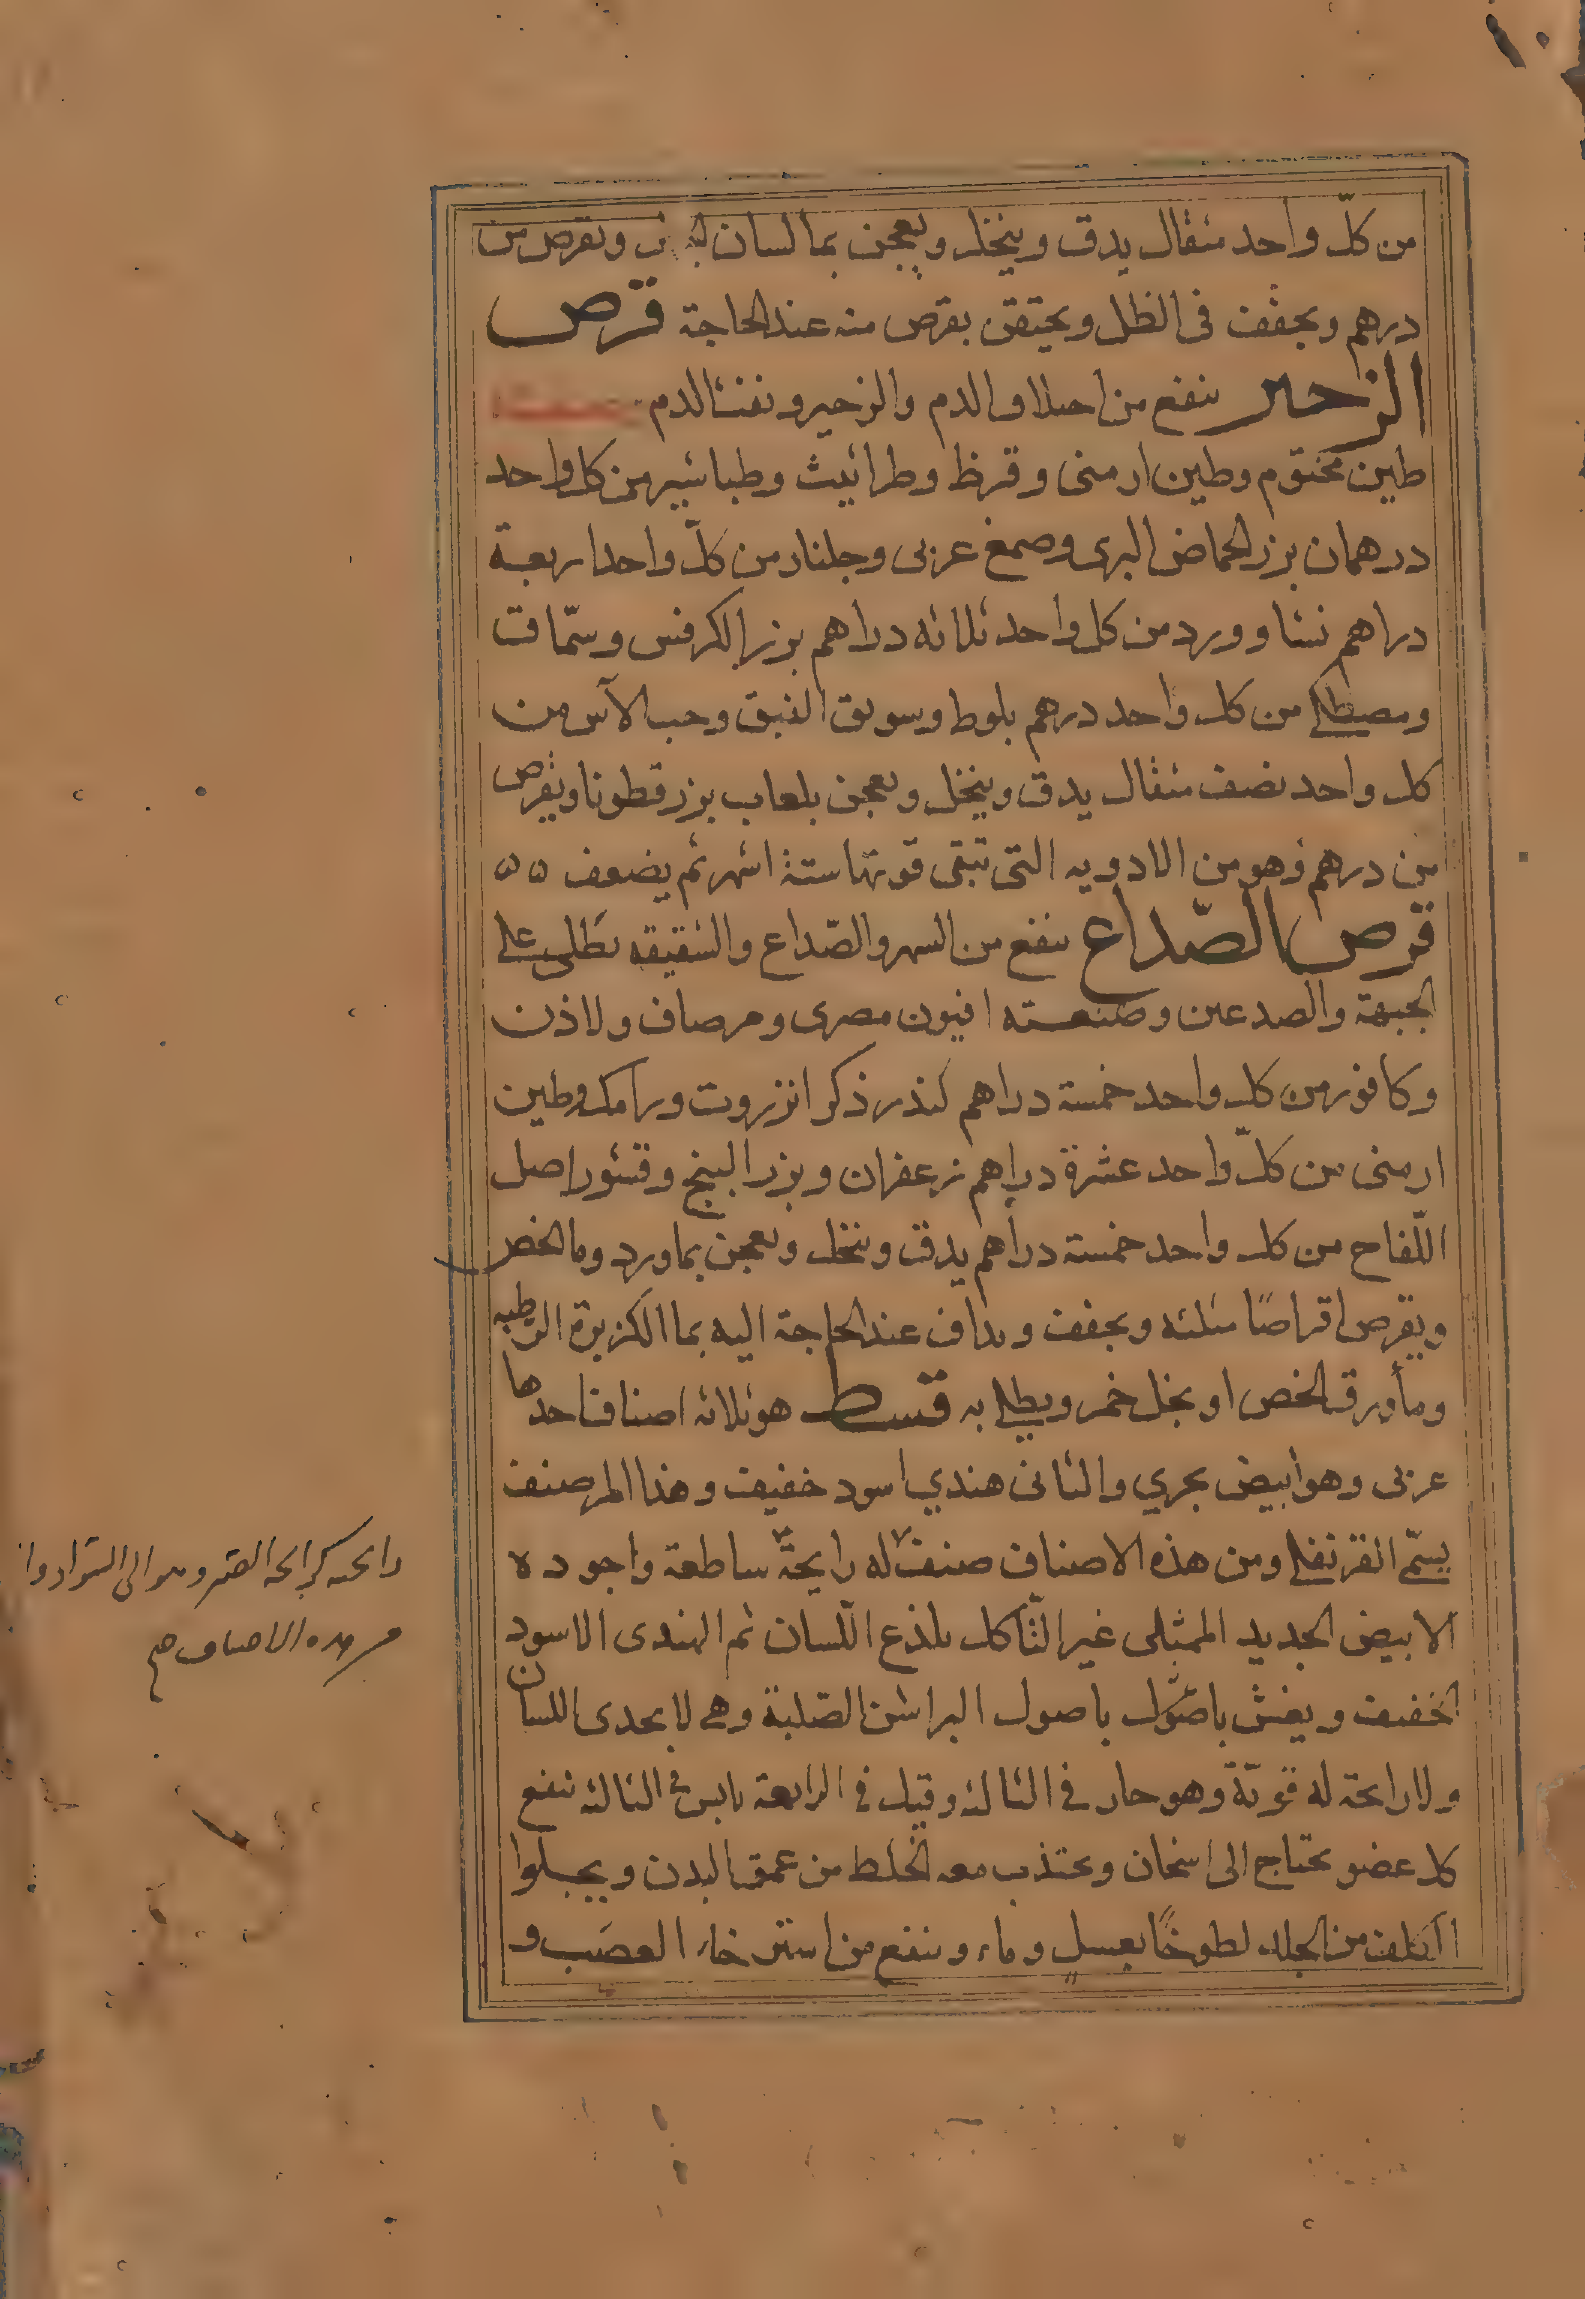 من كلّ واحد مثقال يدق وينخل ويعجن بما لسان ويقرص من
درهم ويجفف فى الظل ويحتقن بقرص منه عند الحاجة قرص
الزحير ينفع من اختلاف الدم والزحير ونفث الدم
طين مختوم وطين ارمنى وقرظ وطراثيث وطباشير من كل واحد
درهمان بزر الحماض البرى وصمغ عربى وجلنار من كلّ واحد اربعة
دراهم نشا وورد من كل واحد ثلاثه دراهم بزر الكرفس وسمّاق
ومصطكى من كل واحد درهم بلوط وسويق النبق وحب الآس من
كل واحد نصف مثقال يدق وينخل ويعجن بلعاب بزر قطونا ويقرص
من درهم وهو من الادويه التى تبقى قوتها ستة اشهر ثم يضعف ه ه
قرص الصّداع ينفع من السهر والصّداع والشقيقه يطلى على
الجبهة والصدعين وصنعته افيون مصرى ومر صاف ولاذن
وكافور من كل واحد خمسة دراهم كندر ذكر انزروت ورامك وطين
ارمنى من كلّ واحد عشرة دراهم زعفران وبزر البنج وقشور اصل
اللّفاح من كل واحد خمسة دراهم يدق وينخل ويعجن بماورد وما الخص
ويقرص اقراصًا مثلثه ويجفف ويداف عند الحاجة اليه بما الكزبرة الرطبه
ومأورق الخص او بخل خمر ويطلى به قسط هو ثلاثه اصناف احدها
عربى وهو ابيض بحري والثانى هندي اسود خفيف وهذا المر صنف
يسمّى القرنفلى ومن هذه الاصناف صنف له رايحة ساطعة واجوده
الابيض الجديد الممتلى غير المتّاكل يلذع اللّسان ثم الهندى الاسود
الخفيف ويغش باصول باصول الراسن الصّلبة وهى لا يحدى اللسان
ولا رائحة له قويّة وهو حار فى الثالثه وقيل فى الرابعة يابس فى الثالثه ينفع
كل عضو يحتاج الى اسخان ويجتذب معه الخلط من عمق البدن ويجلوا
الكلف من الجلد لطوخًا بعسل وماء وينفع من استرخاء العصَب و
رايحته كرايحة وهو الى السواد
من هذه الاصناف صح